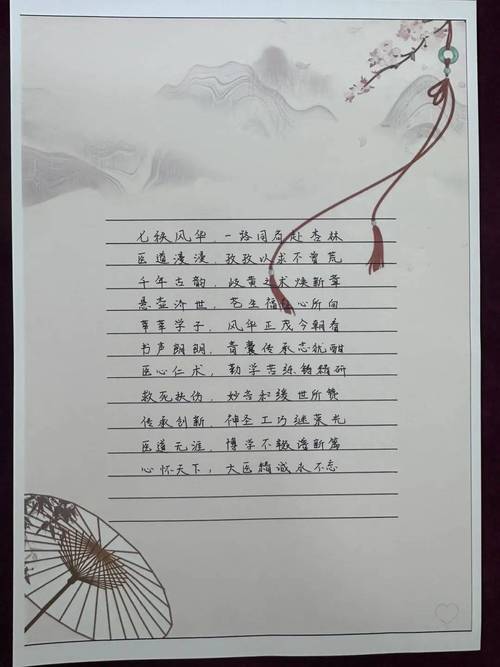 七秩风华,一路同舟赴杏林
医道漫漫,孜孜以求不曾荒
千年古韵,岐黄之术焕新章
悬壶济世,苍生福祉心所向
莘莘学子,风华正茂今朝看
书声朗朗,青囊传承志犹酣
医心仁术,勤学苦练铸精研
救死扶伤,妙手和缓世所赞
传承创新,神圣工巧继荣光
医道无涯,博学不辍谱新篇
心怀天下,大医精诚永不忘